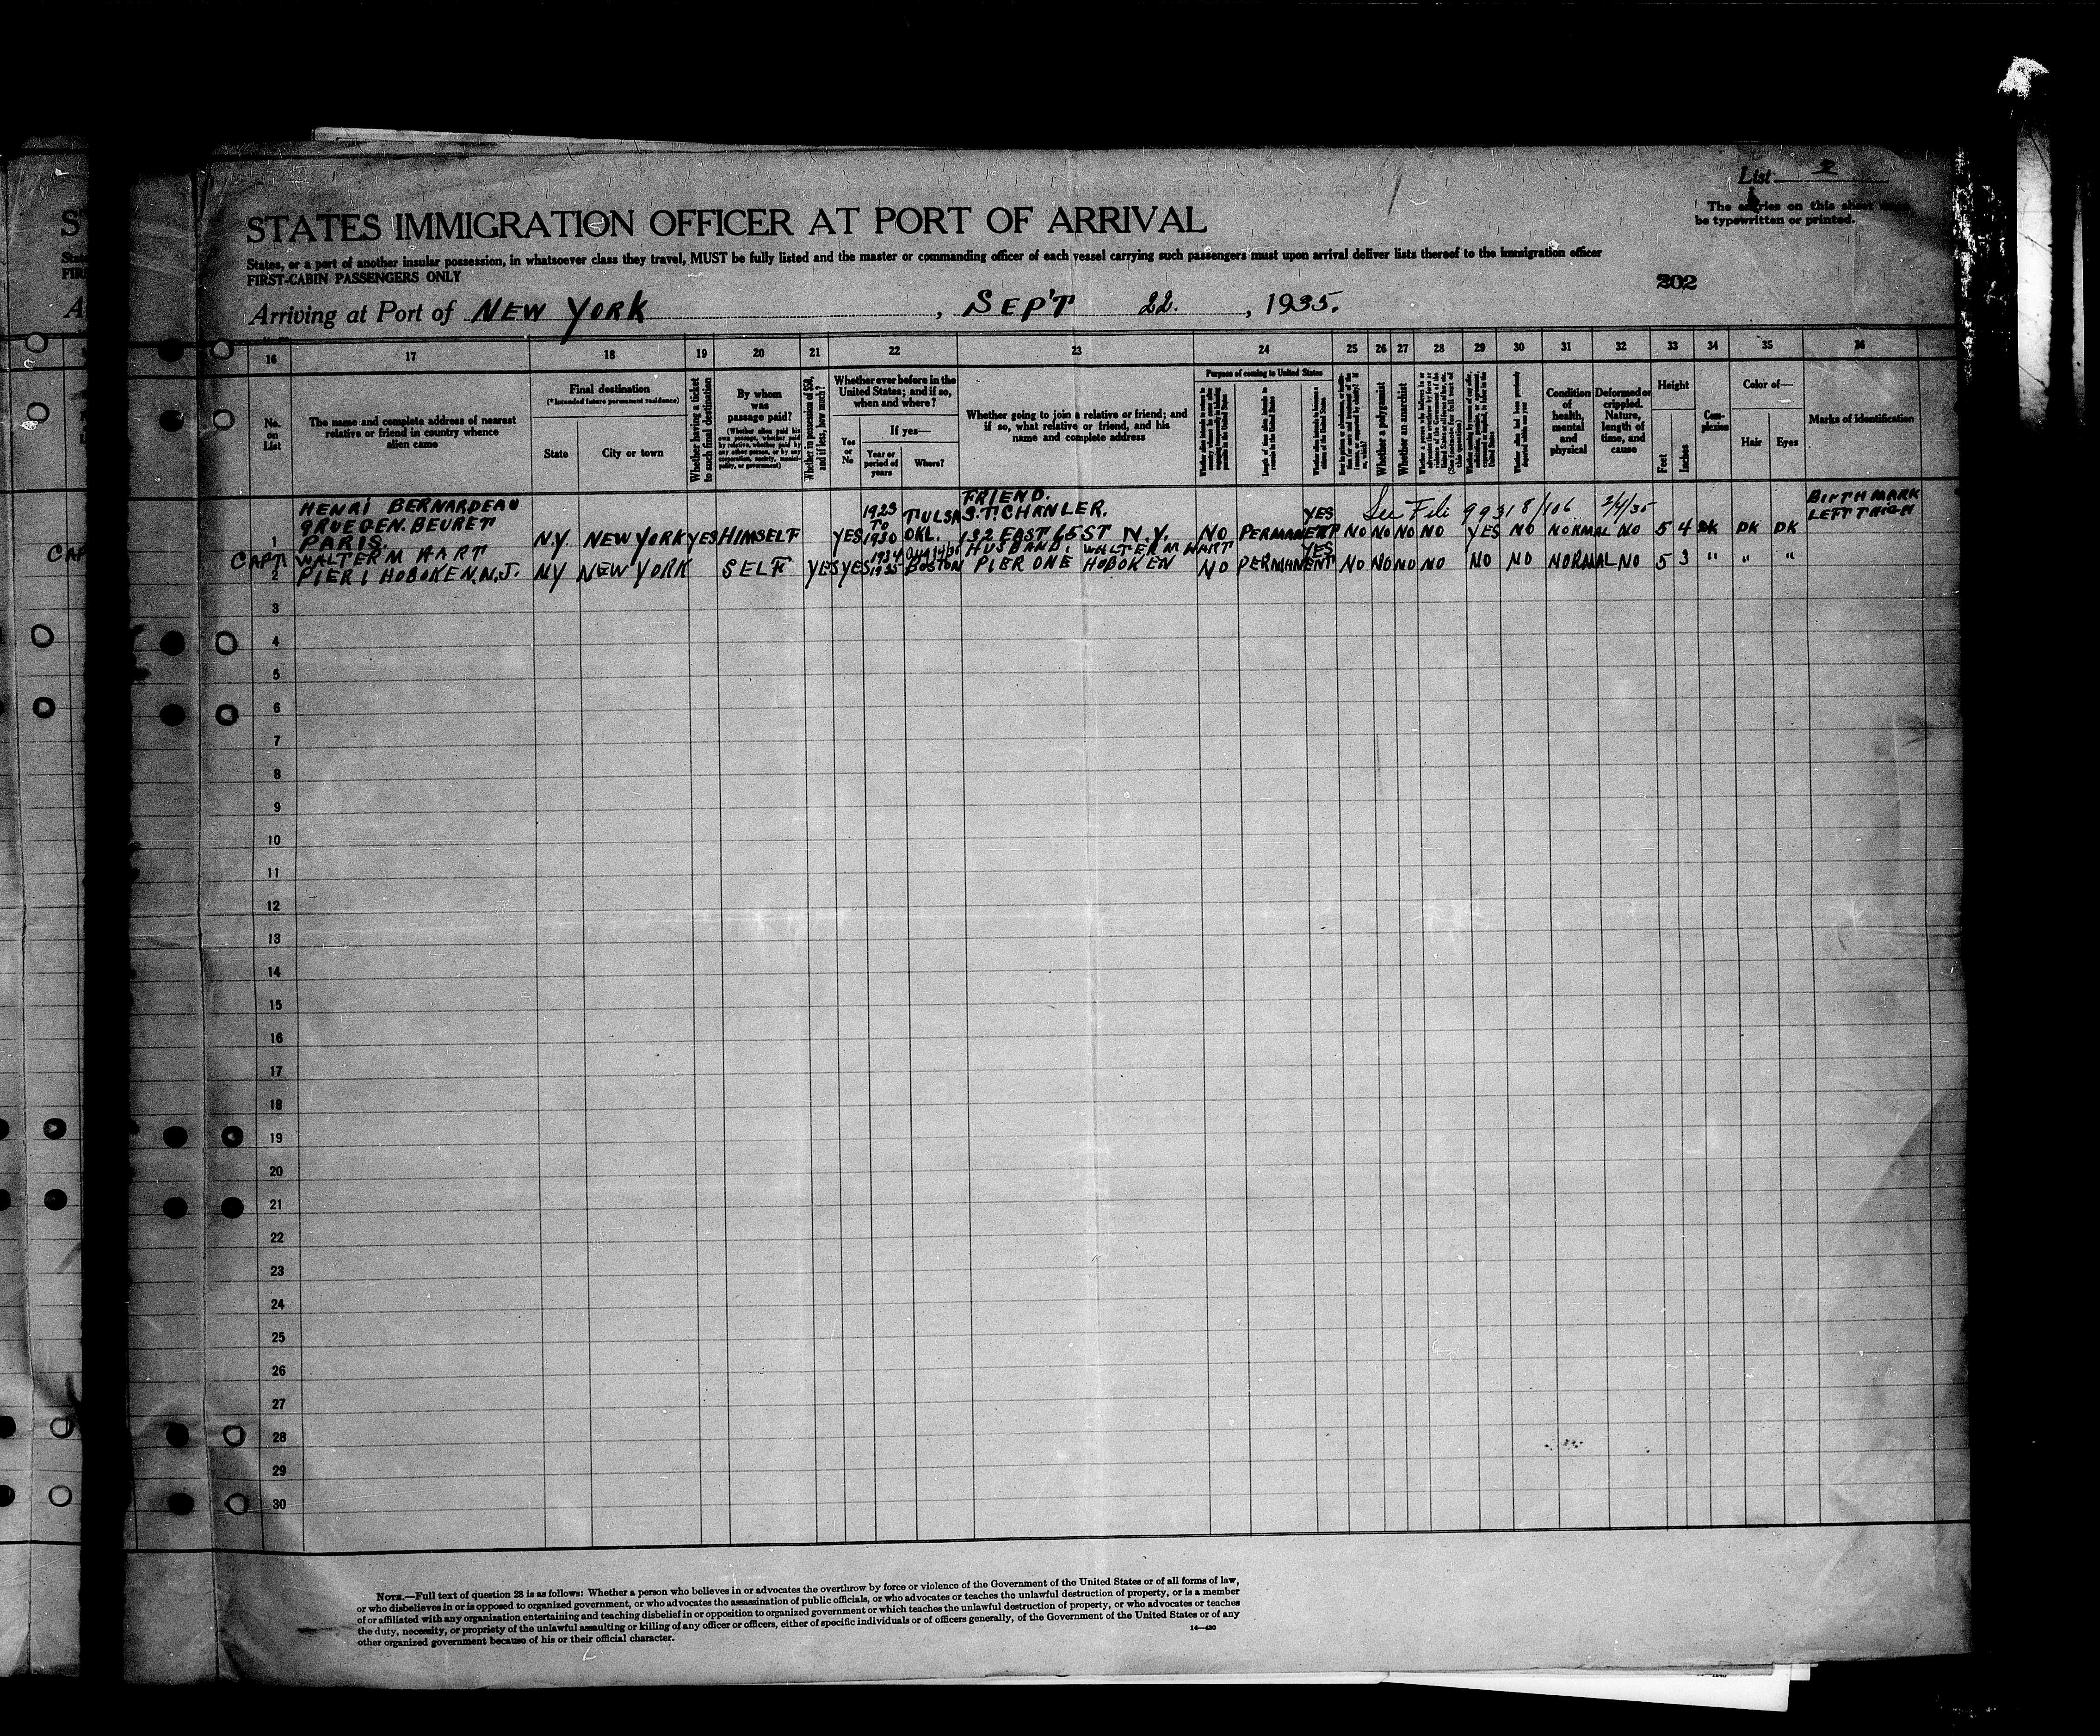 List 2
The entries on this sheet must
be typewritten or printed.
STATES IMMIGRATION OFFICER AT PORT OF ARRIVAL
States, or a port of another insular possession, in whatsoever class they travel, MUST be fully listed and the master or commanding officer of each vessel carrying such passengers must upon arrival deliver lists thereof to the immigration officer
FIRST-CABIN PASSENGERS ONLY
202
Arriving at Port of NEW YORK, SEP'T 22., 1935.
16 17 18 19 20 21 22 23 24 25 26 27 28 29 30 31 32 33 34 35 36
No. on List
The name and complete address of nearest relative or friend in country whence alien came
Final destination
(*Intended future permanent residence)
State
City or town
Whether having a ticket to such final destination
By whom was passage paid?
(Whether alien paid his own passage, whether paid by relative, whether paid by any other person, or by any corporation, society, municipality, or government)
Whether in possession of $50, and if less, how much?
Whether ever before in the United States; and if so, when and where?
Yes or No
If yes—
Year or period of years
Where?
Whether going to join a relative or friend; and if so, what relative or friend, and his name and complete address
Purpose of coming to United States
Length of time alien intends to remain in the United States
Whether alien intends to become a citizen of the United States
Whether a polygamist
Whether an anarchist
Condition of health, mental and physical
Deformed or crippled. Nature, length of time, and cause
Height
Feet
Inches
Complexion
Color of—
Hair
Eyes
Marks of identification
1 HENRI BERNARDEAU
GRUEGEN. BEURET
PARIS. N.Y. NEW YORK YES HIMSELF YES 1923 TO 1930 TULSA OKL. FRIEND. S.T. CHANLER. 132 EAST 65 ST N.Y. NO PERMANENT YES NO NO NO NO YES NO NORMAL NO 5 4 DK DK DK BIRTHMARK LEFT THIGH
See File 99318/106 2/4/35
CAPT. WALTER M HART
2 PIER 1 HOBOKEN. N.J. NY NEW YORK SELF YES YES 1934 1935 BOSTON HUSBAND: WALTER M HART PIER ONE HOBOKEN NO PERMANENT YES NO NO NO NO NO NO NORMAL NO 5 3 " " "
3
4
5
6
7
8
9
10
11
12
13
14
15
16
17
18
19
20
21
22
23
24
25
26
27
28
29
30
NOTE.—Full text of question 28 is as follows: Whether a person who believes in or advocates the overthrow by force or violence of the Government of the United States or of all forms of law,
or who disbelieves in or is opposed to organized government, or who advocates the assassination of public officials, or who advocates or teaches the unlawful destruction of property, or is a member
of or affiliated with any organization entertaining and teaching disbelief in or opposition to organized government or which teaches the unlawful destruction of property, or who advocates or teaches
the duty, necessity, or propriety of the unlawful assaulting or killing of any officer or officers, either of specific individuals or of officers generally, of the Government of the United States or of any
other organized government because of his or their official character.
14—430